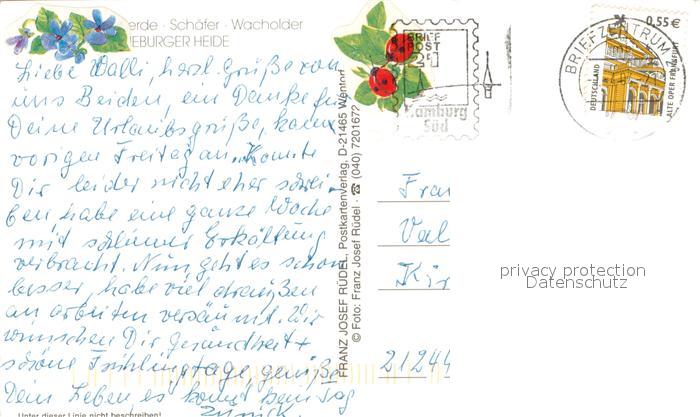 erde · Schäfer · Wacholder
EBURGER HEIDE
Liebe Walli herzl. Grüße von
uns Beiden, ein Danke für
Deine Urlaubsgrüße, kam
vorigen Freitag an. Konnte
Dir leider nicht eher schrei-
ben habe eine ganze Woche
mit schlimmer Erkältung
verbracht. Nun geht es schon
besser, habe viel draußen
an arbeiten versäumt. Wir
wünschen Dir Gesundheit +
schöne Frühlingstage, genieße
Dein Leben, es kommt kein Tag
zurück.
Unter dieser Linie nicht beschreiben!
FRANZ JOSEF RÜDEL, Postkartenverlag, D-21465 Wentorf
© Foto: Franz Josef Rüdel · ☎ (040) 7201672
BRIEF
POST
21
Hamburg
Süd
BRIEFZENTRUM
0,55 €
DEUTSCHLAND
ALTE OPER FRANKFURT
Frau
Val
Kir
21244
privacy protection
Datenschutz